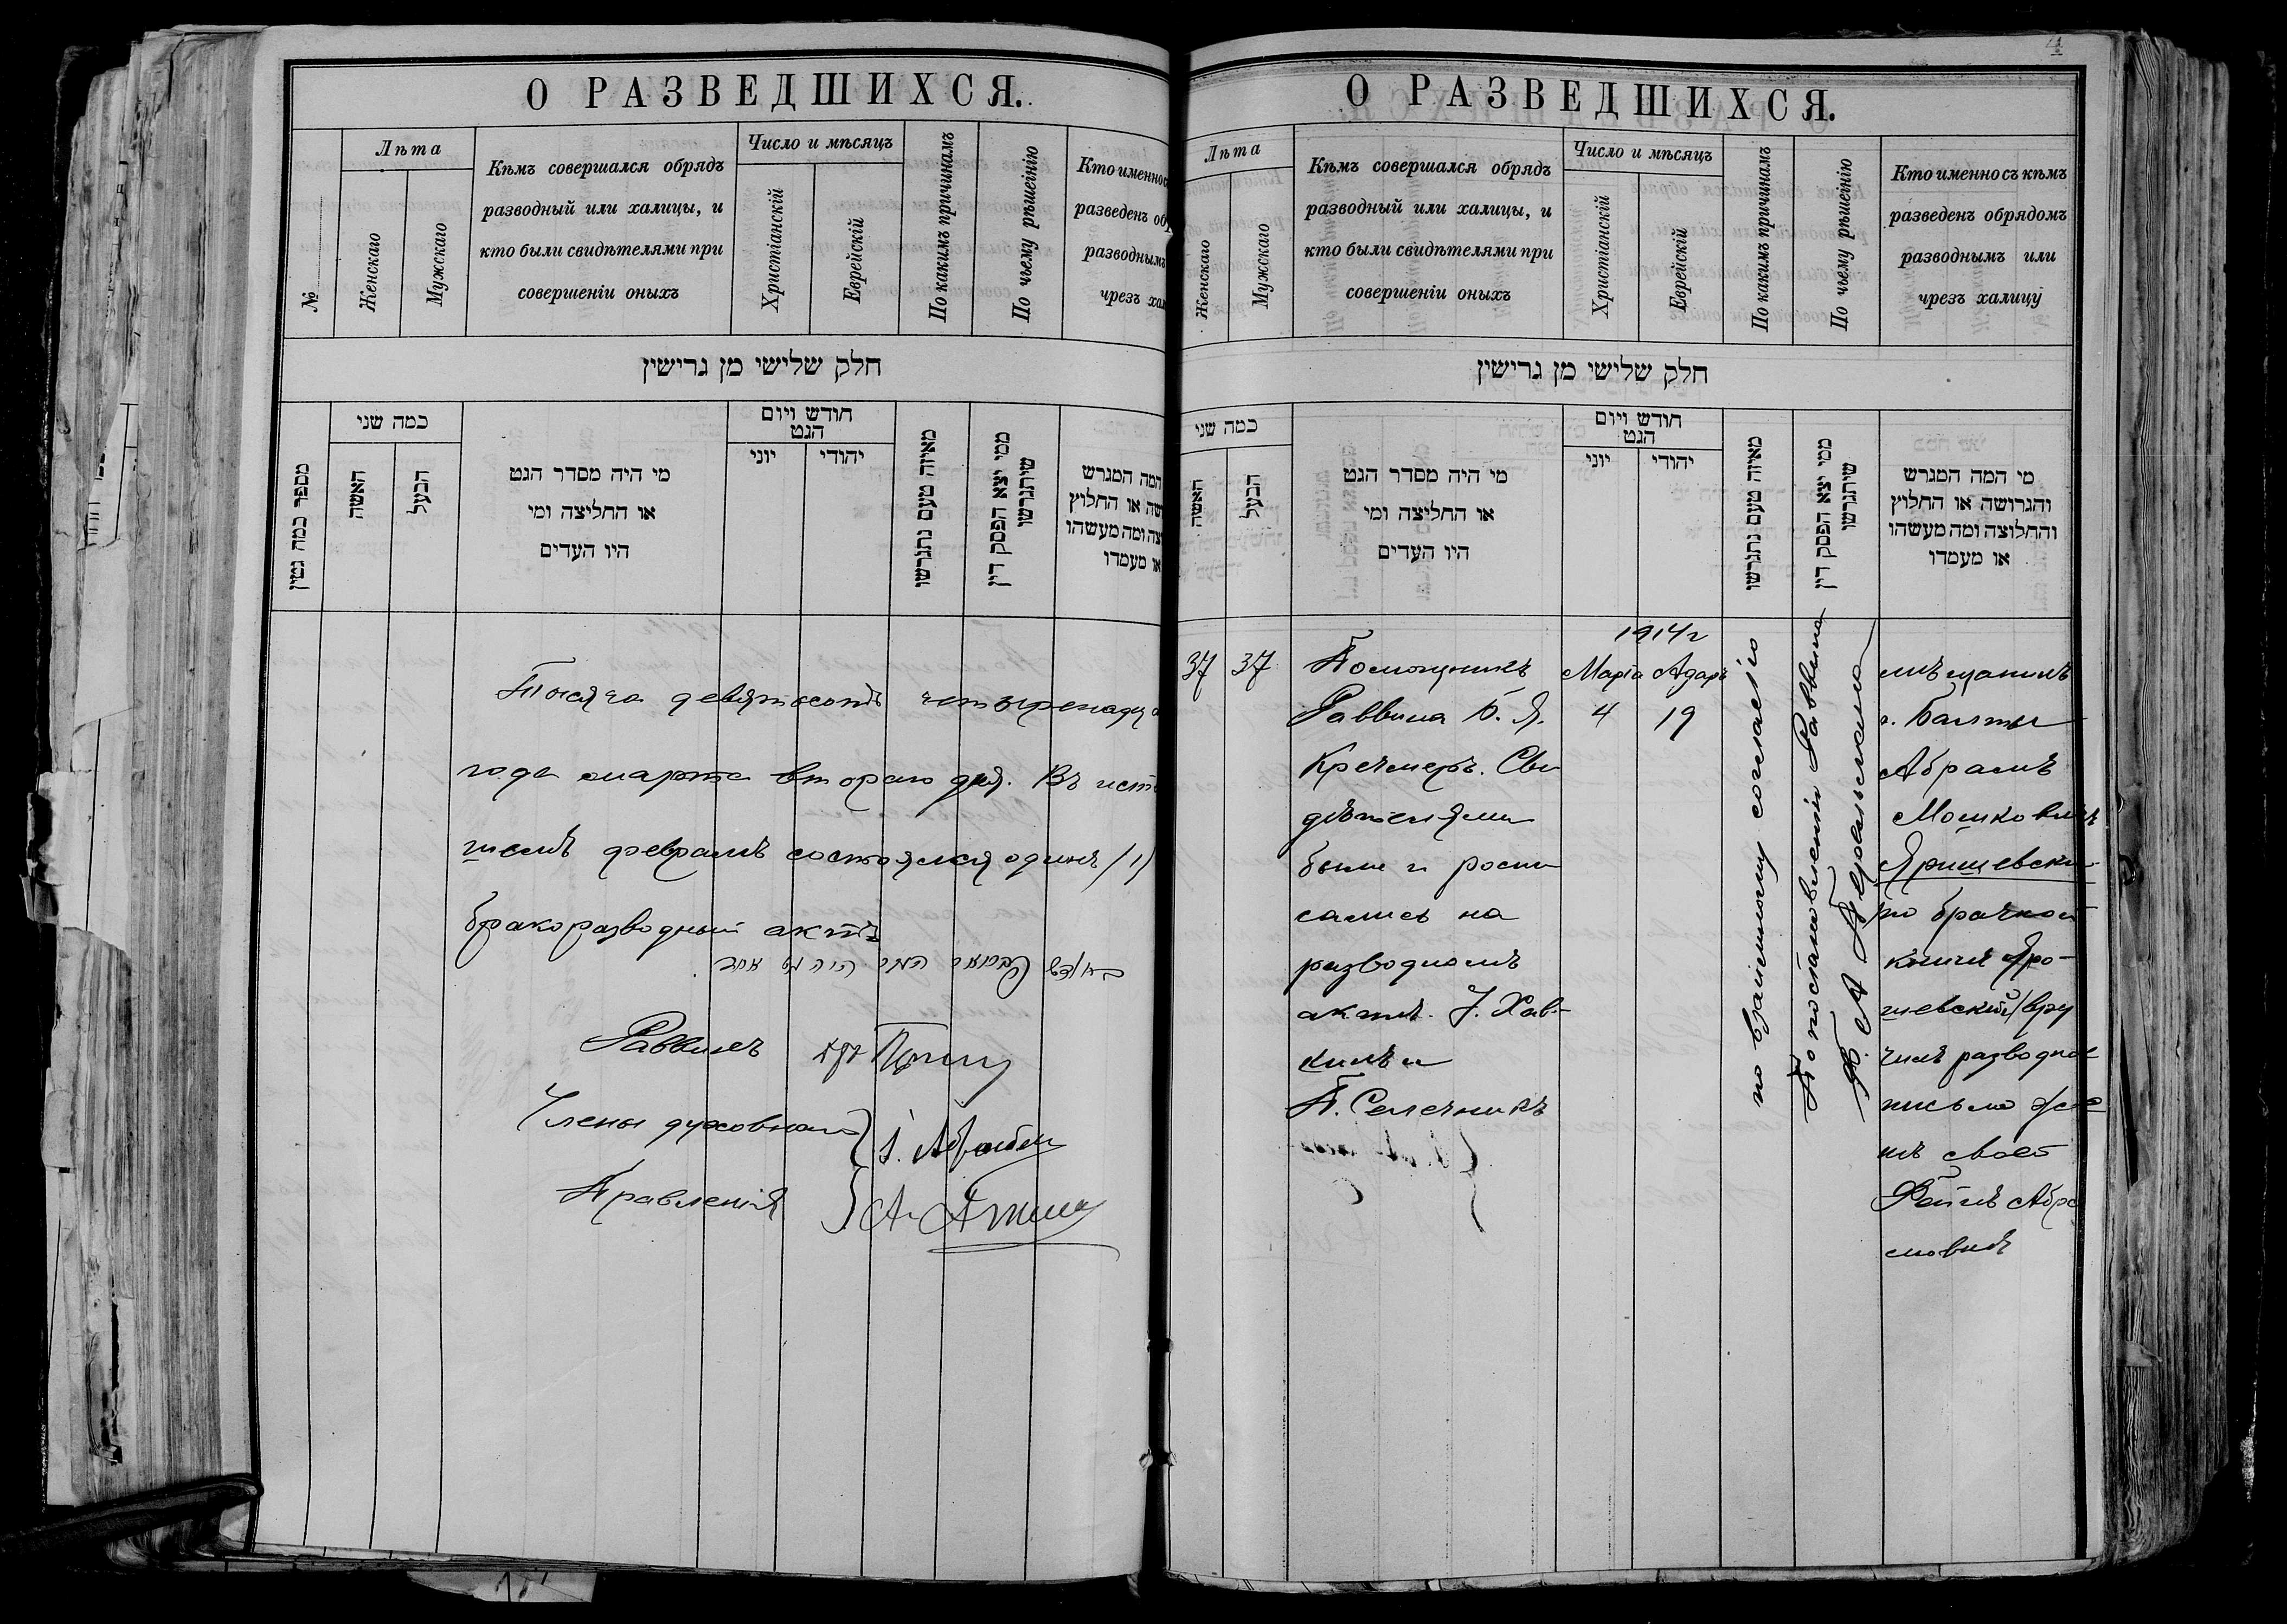 О РАЗВЕДШИХСЯ.
№
Лѣта
Женскаго
Мужскаго
Кѣмъ совершался обрядъ
разводный или халицы, и
кто были свидѣтелями при
совершеніи оныхъ
Число и мѣсяцъ
Христіанскій
Еврейскій
По какимъ причинамъ
По чьему рѣшенію
Кто именно с
разведенъ об
разводнымъ
чрезъ ха
חלק שלישי מן גרישין
מספר כמה גטין
כמה שני
האשה
הבעל
מי היה מסדר הגט
או החליצה ומי
היו העדים
חודש ויום
הגט
יוני
יהודי
מאיזה טעם נתגרשו
ממי יצא הפסק דין
שיתגרשו
המה המגרש
שה או החלוץ
צה ומה מעשהו
או מעמדו
Тысяча девятьсотъ четырнадца
года марта втораго дня. Въ исте
шемъ февралѣ состоялся одинъ /1/
бракоразводный актъ
Раввинъ
Члены духовнаго
Правленія
О РАЗВЕДШИХСЯ.
4
Лѣта
Женскаго
Мужскаго
Кѣмъ совершался обрядъ
разводный или халицы, и
кто были свидѣтелями при
совершеніи оныхъ
Число и мѣсяцъ
Христіанскій
Еврейскій
По какимъ причинамъ
По чьему рѣшенію
Кто именно съ кѣмъ
разведенъ обрядомъ
разводнымъ или
чрезъ халицу
חלק שלישי מן גרישין
כמה שני
האשה
הבעל
מי היה מסדר הגט
או החליצה ומי
היו העדים
חודש ויום
הגט
יוני
יהודי
מאיזה טעם נתגרשו
ממי יצא הפסק דין
שיתגרשו
מי המה המגרש
והגרושה או החלוץ
והחלוצה ומה מעשהו
או מעמדו
37
37
Помощникъ
Раввина Б. Я.
Кречмеръ. Сви
дѣтелями
были и роспи
сались на
разводномъ
актѣ. І. Хав-
кинъ и
П. Селечникъ
1914 г
Марта Адаръ
4 19
по взаимному согласію
По постановленію Раввина
мѣщанинъ
г. Балты
Абрамъ
Мошковичъ
Яришевски
по брачной
книгѣ Яро-
шевскій/ вру
чилъ разводное
письмо же
нѣ своей
Фейгѣ Абра
мовнѣ